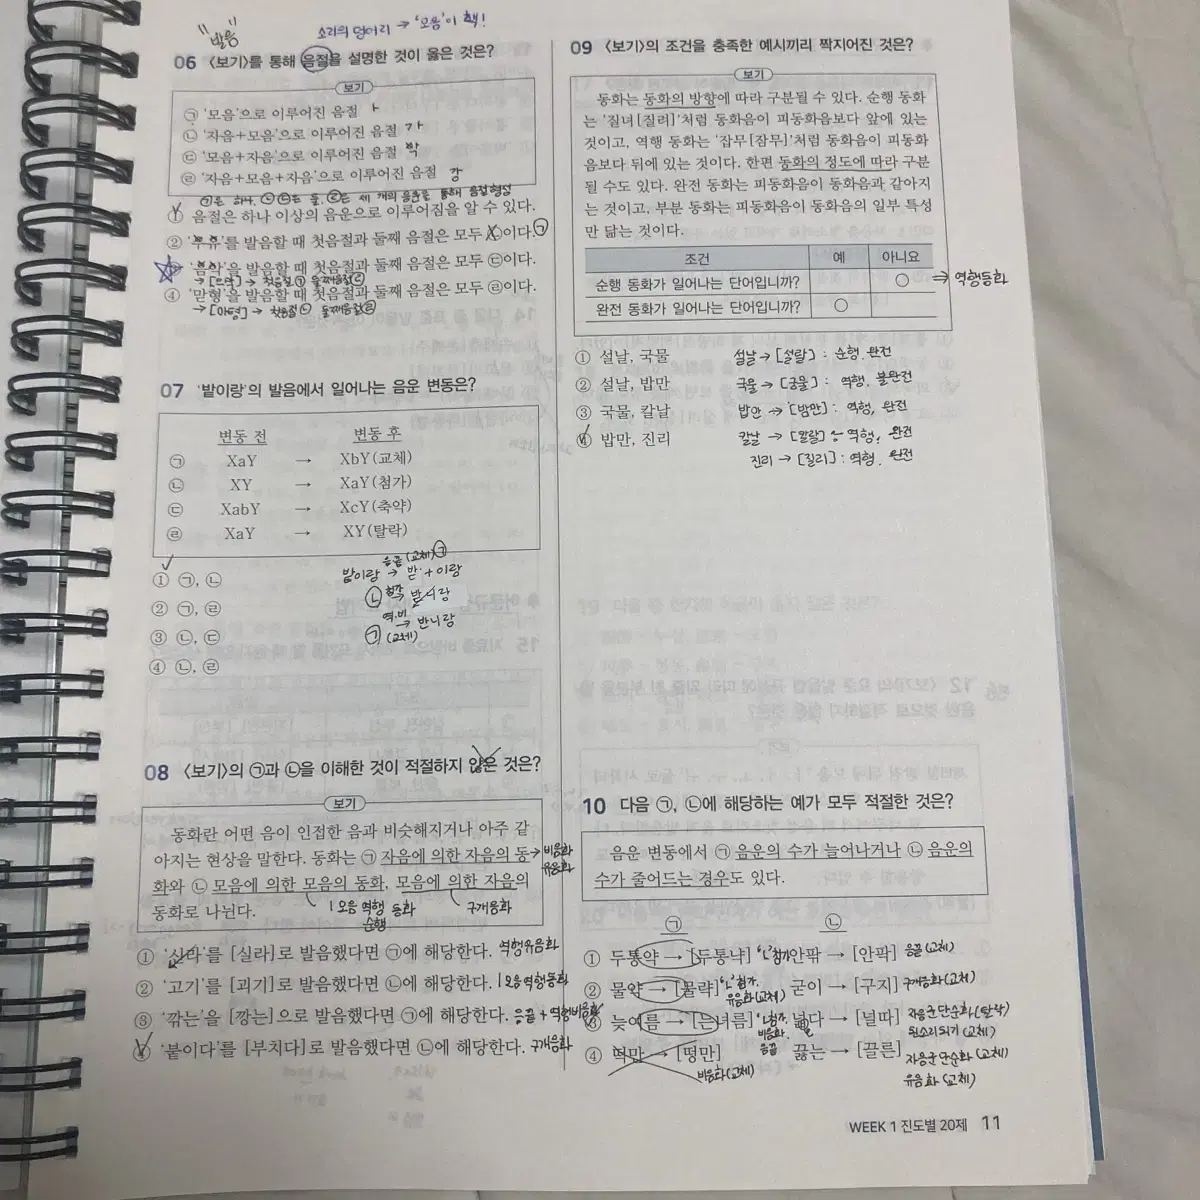 "발음"
소리의 덩어리 → '모음'이 핵!
06 <보기>를 통해 음절을 설명한 것이 옳은 것은?
보기
㉠ '모음'으로 이루어진 음절 ㅏ
㉡ '자음+모음'으로 이루어진 음절 가
㉢ '모음+자음'으로 이루어진 음절 박
㉣ '자음+모음+자음'으로 이루어진 음절 강
㉠은 하나, ㉡㉢은 둘, ㉣은 세 개의 음운을 통해 음절형성
① 음절은 하나 이상의 음운으로 이루어짐을 알 수 있다.
② '우유'를 발음할 때 첫음절과 둘째 음절은 모두 ㉡이다. ㉠
③ '음악'을 발음할 때 첫음절과 둘째 음절은 모두 ㉢이다.
→ [으막] → 첫음절 ㉠ 둘째음절 ㉣
④ '맏형'을 발음할 때 첫음절과 둘째 음절은 모두 ㉣이다.
→ [마텽] → 첫음절 ㉡ 둘째음절 ㉣
07 '밭이랑'의 발음에서 일어나는 음운 변동은?
변동 전 변동 후
㉠ XaY → XbY(교체)
㉡ XY → XaY(첨가)
㉢ XabY → XcY(축약)
㉣ XaY → XY(탈락)
음끝 (교체) ㉠
밭이랑 → 받 + 이랑
㉡ 첨가 → 받니랑
역.비 → 반니랑
㉠ (교체)
① ㉠, ㉡
② ㉠, ㉣
③ ㉡, ㉢
④ ㉡, ㉣
08 <보기>의 ㉠과 ㉡을 이해한 것이 적절하지 않은 것은?
보기
동화란 어떤 음이 인접한 음과 비슷해지거나 아주 같
아지는 현상을 말한다. 동화는 ㉠ 자음에 의한 자음의 동 → 비음화
유음화
화와 ㉡ 모음에 의한 모음의 동화, 모음에 의한 자음의
동화로 나뉜다. ㅣ모음 역행 동화 구개음화
순행
① '신라'를 [실라]로 발음했다면 ㉠에 해당한다. 역행유음화
② '고기'를 [괴기]로 발음했다면 ㉡에 해당한다. ㅣ모음역행동화
③ '깎는'을 [깡는]으로 발음했다면 ㉠에 해당한다. 음끝 + 역행비음화
④ '붙이다'를 [부치다]로 발음했다면 ㉡에 해당한다. 구개음화
09 <보기>의 조건을 충족한 예시끼리 짝지어진 것은?
보기
동화는 동화의 방향에 따라 구분될 수 있다. 순행 동화
는 '질녀[질려]'처럼 동화음이 피동화음보다 앞에 있는
것이고, 역행 동화는 '잡무[잠무]'처럼 동화음이 피동화
음보다 뒤에 있는 것이다. 한편 동화의 정도에 따라 구분
될 수도 있다. 완전 동화는 피동화음이 동화음과 같아지
는 것이고, 부분 동화는 피동화음이 동화음의 일부 특성
만 닮는 것이다.
조건 예 아니요
순행 동화가 일어나는 단어입니까? ○ ⇒ 역행동화
완전 동화가 일어나는 단어입니까? ○
① 설날, 국물 설날 → [설랄] : 순행, 완전
② 설날, 밥만 국물 → [궁물] : 역행, 불완전
③ 국물, 칼날 밥만 → [밤만] : 역행, 완전
④ 밥만, 진리 칼날 → [칼랄] 역행, 완전
진리 → [질리] : 역행, 완전
10 다음 ㉠, ㉡에 해당하는 예가 모두 적절한 것은?
음운 변동에서 ㉠ 음운의 수가 늘어나거나 ㉡ 음운의
수가 줄어드는 경우도 있다.
㉠ ㉡
① 두통약 → [두통냑] 'ㄴ'첨가 안팎 → [안팍] 음끝(교체)
② 물약 → [물략] 'ㄴ'첨가 유음화(교체) 굳이 → [구지] 구개음화(교체)
③ 늦여름 → [는녀름] 'ㄴ'첨가 비음화 음끝 넓다 → [널따] 자음군단순화(탈락) 된소리되기(교체)
④ 떡만 → [떵만] 비음화(교체) 끓는 → [끌른] 자음군단순화(교체) 유음화(교체)
WEEK 1 진도별 20제 11